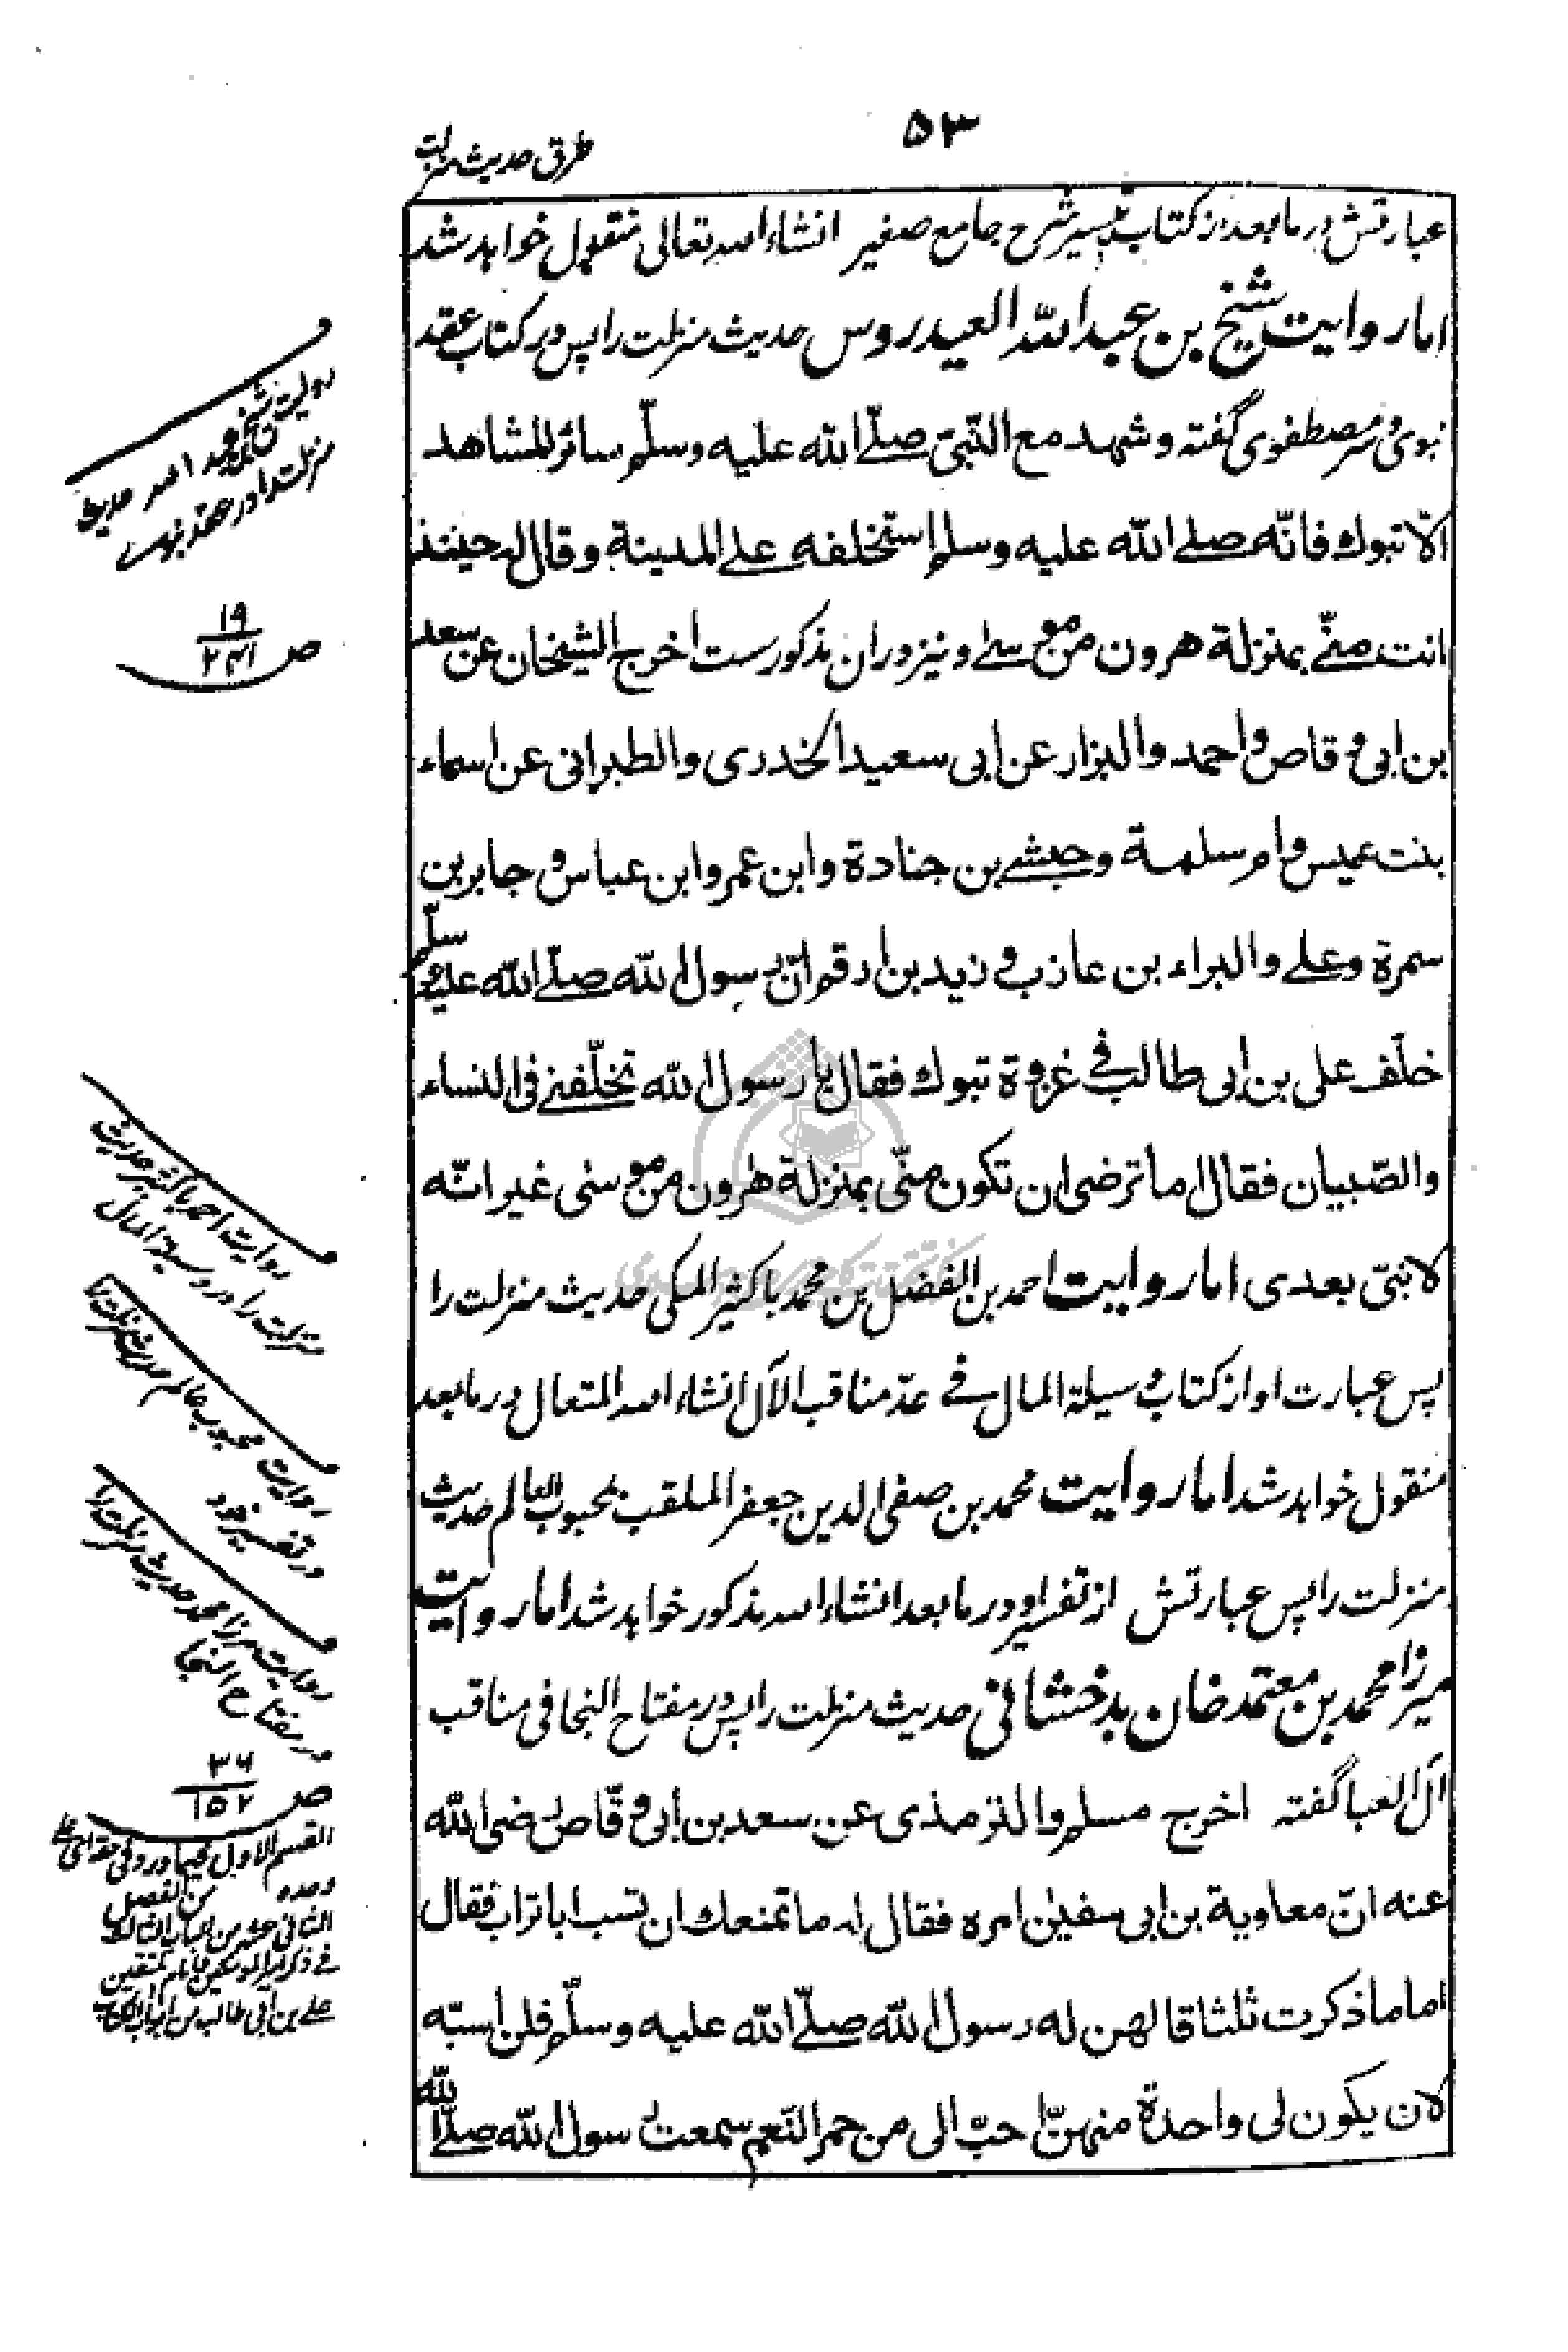 ۵۳
طرق حدیث منزلت
عبارتش در ما بعد از کتاب تیسیر شرح جامع صغیر انشاء الله تعالی منقول خواهد شد
اما روایت شیخ بن عبد الله العیدروس حدیث منزلت را پس در کتاب عقد
نبوی و سر مصطفوی گفته و شهد مع النّبیّ صلّے الله علیه وسلّم سائر المشاهد
الاّ تبوك فانّه صلے الله علیه وسلم استخلفه علے المدینة وقال له حینئذ
انت منّے بمنزلة هرون من موسے و نیز در ان مذکورست اخرج الشیخان عن سعد
بن ابی وقاص واحمد والبزار عن ابی سعید الخدری والطبرانی عن اسماء
بنت عمیس وام سلمة وحبشے بن جنادة وابن عمر وابن عباس وجابر بن
سمرة وعلے والبراء بن عازب وزید بن ارقم انّ رسول الله صلّے الله علیه وسلّم
خلّف علی بن ابی طالب فی غزوة تبوك فقال یا رسول الله تخلّفنے فی النساء
والصّبیان فقال اما ترضی ان تکون منّی بمنزلة هرون من موسی غیر انّه
لا نبیّ بعدی اما روایت احمد بن الفضل بن محمد باکثیر المکی حدیث منزلت را
پس عبارت او از کتاب وسیلة المال فے عدّ مناقب الآل انشاء الله المتعال در ما بعد
منقول خواهد شد اما روایت محمد بن صفی الدین جعفر الملقب بمحبوب العالم حدیث
منزلت را پس عبارتش از تفسیر او در ما بعد انشاء الله مذکور خواهد شد اما روایت
میرزا محمد بن معتمد خان بدخشانی حدیث منزلت را پس در مفتاح النجا فی مناقب
آل العبا گفته اخرج مسلم والترمذی عن سعد بن ابی وقّاص رضی الله
عنه انّ معاویة بن ابی سفین امره فقال له ما تمنعك ان تسب ابا تراب فقال
اما ما ذکرت ثلثا قالهن له رسول الله صلّے الله علیه وسلّم فلن اسبّه
لان یکون لی واحدة منهنّ احبّ الی من حمر النّعم سمعت رسول الله صلّے الله
روایت شیخ بن عبد الله حدیث
منزلت را در عقد نبوی
ص ۱۹/۲۴۱
روایت احمد باکثیر حدیث
منزلت را در وسیلة المال
روایت محبوب عالم حدیث منزلت را
در تفسیر خود
روایت میرزا محمد حدیث منزلت را
در مفتاح النجا
ص ۳۶/۱۵۲
القسم الاول فیما ورد فی حقه
وحده من الفصل
الثانی عشر من الباب الثالث
فے ذکر امیر المومنین امام المتقین
علے بن ابی طالب من ابواب الکتاب